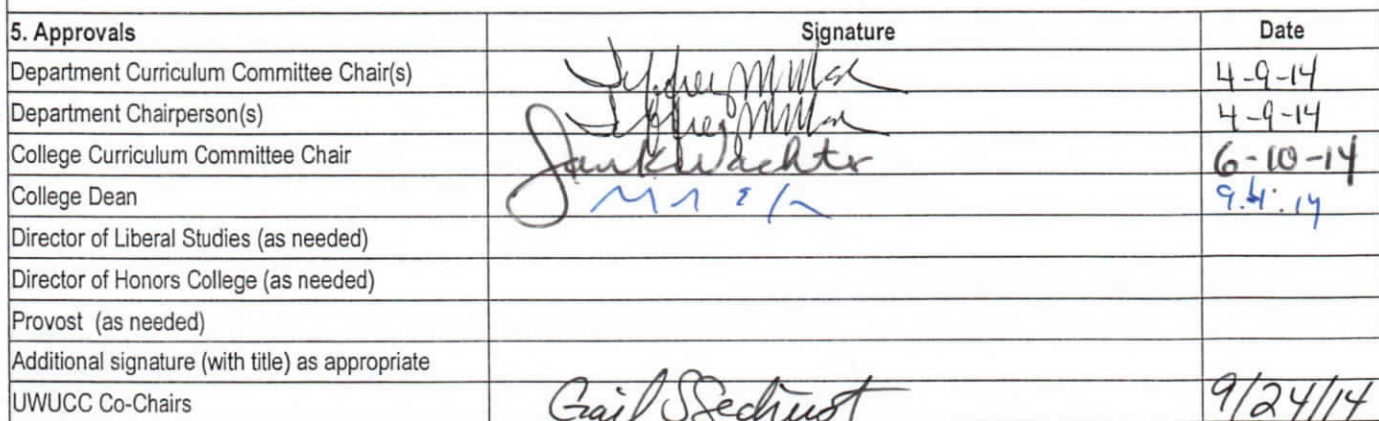 5. Approvals Signature Date
Department Curriculum Committee Chair(s) 4-9-14
Department Chairperson(s) 4-9-14
College Curriculum Committee Chair 6-10-14
College Dean 9.4.14
Director of Liberal Studies (as needed)
Director of Honors College (as needed)
Provost (as needed)
Additional signature (with title) as appropriate
UWUCC Co-Chairs Gail S Sechrist 9/24/14